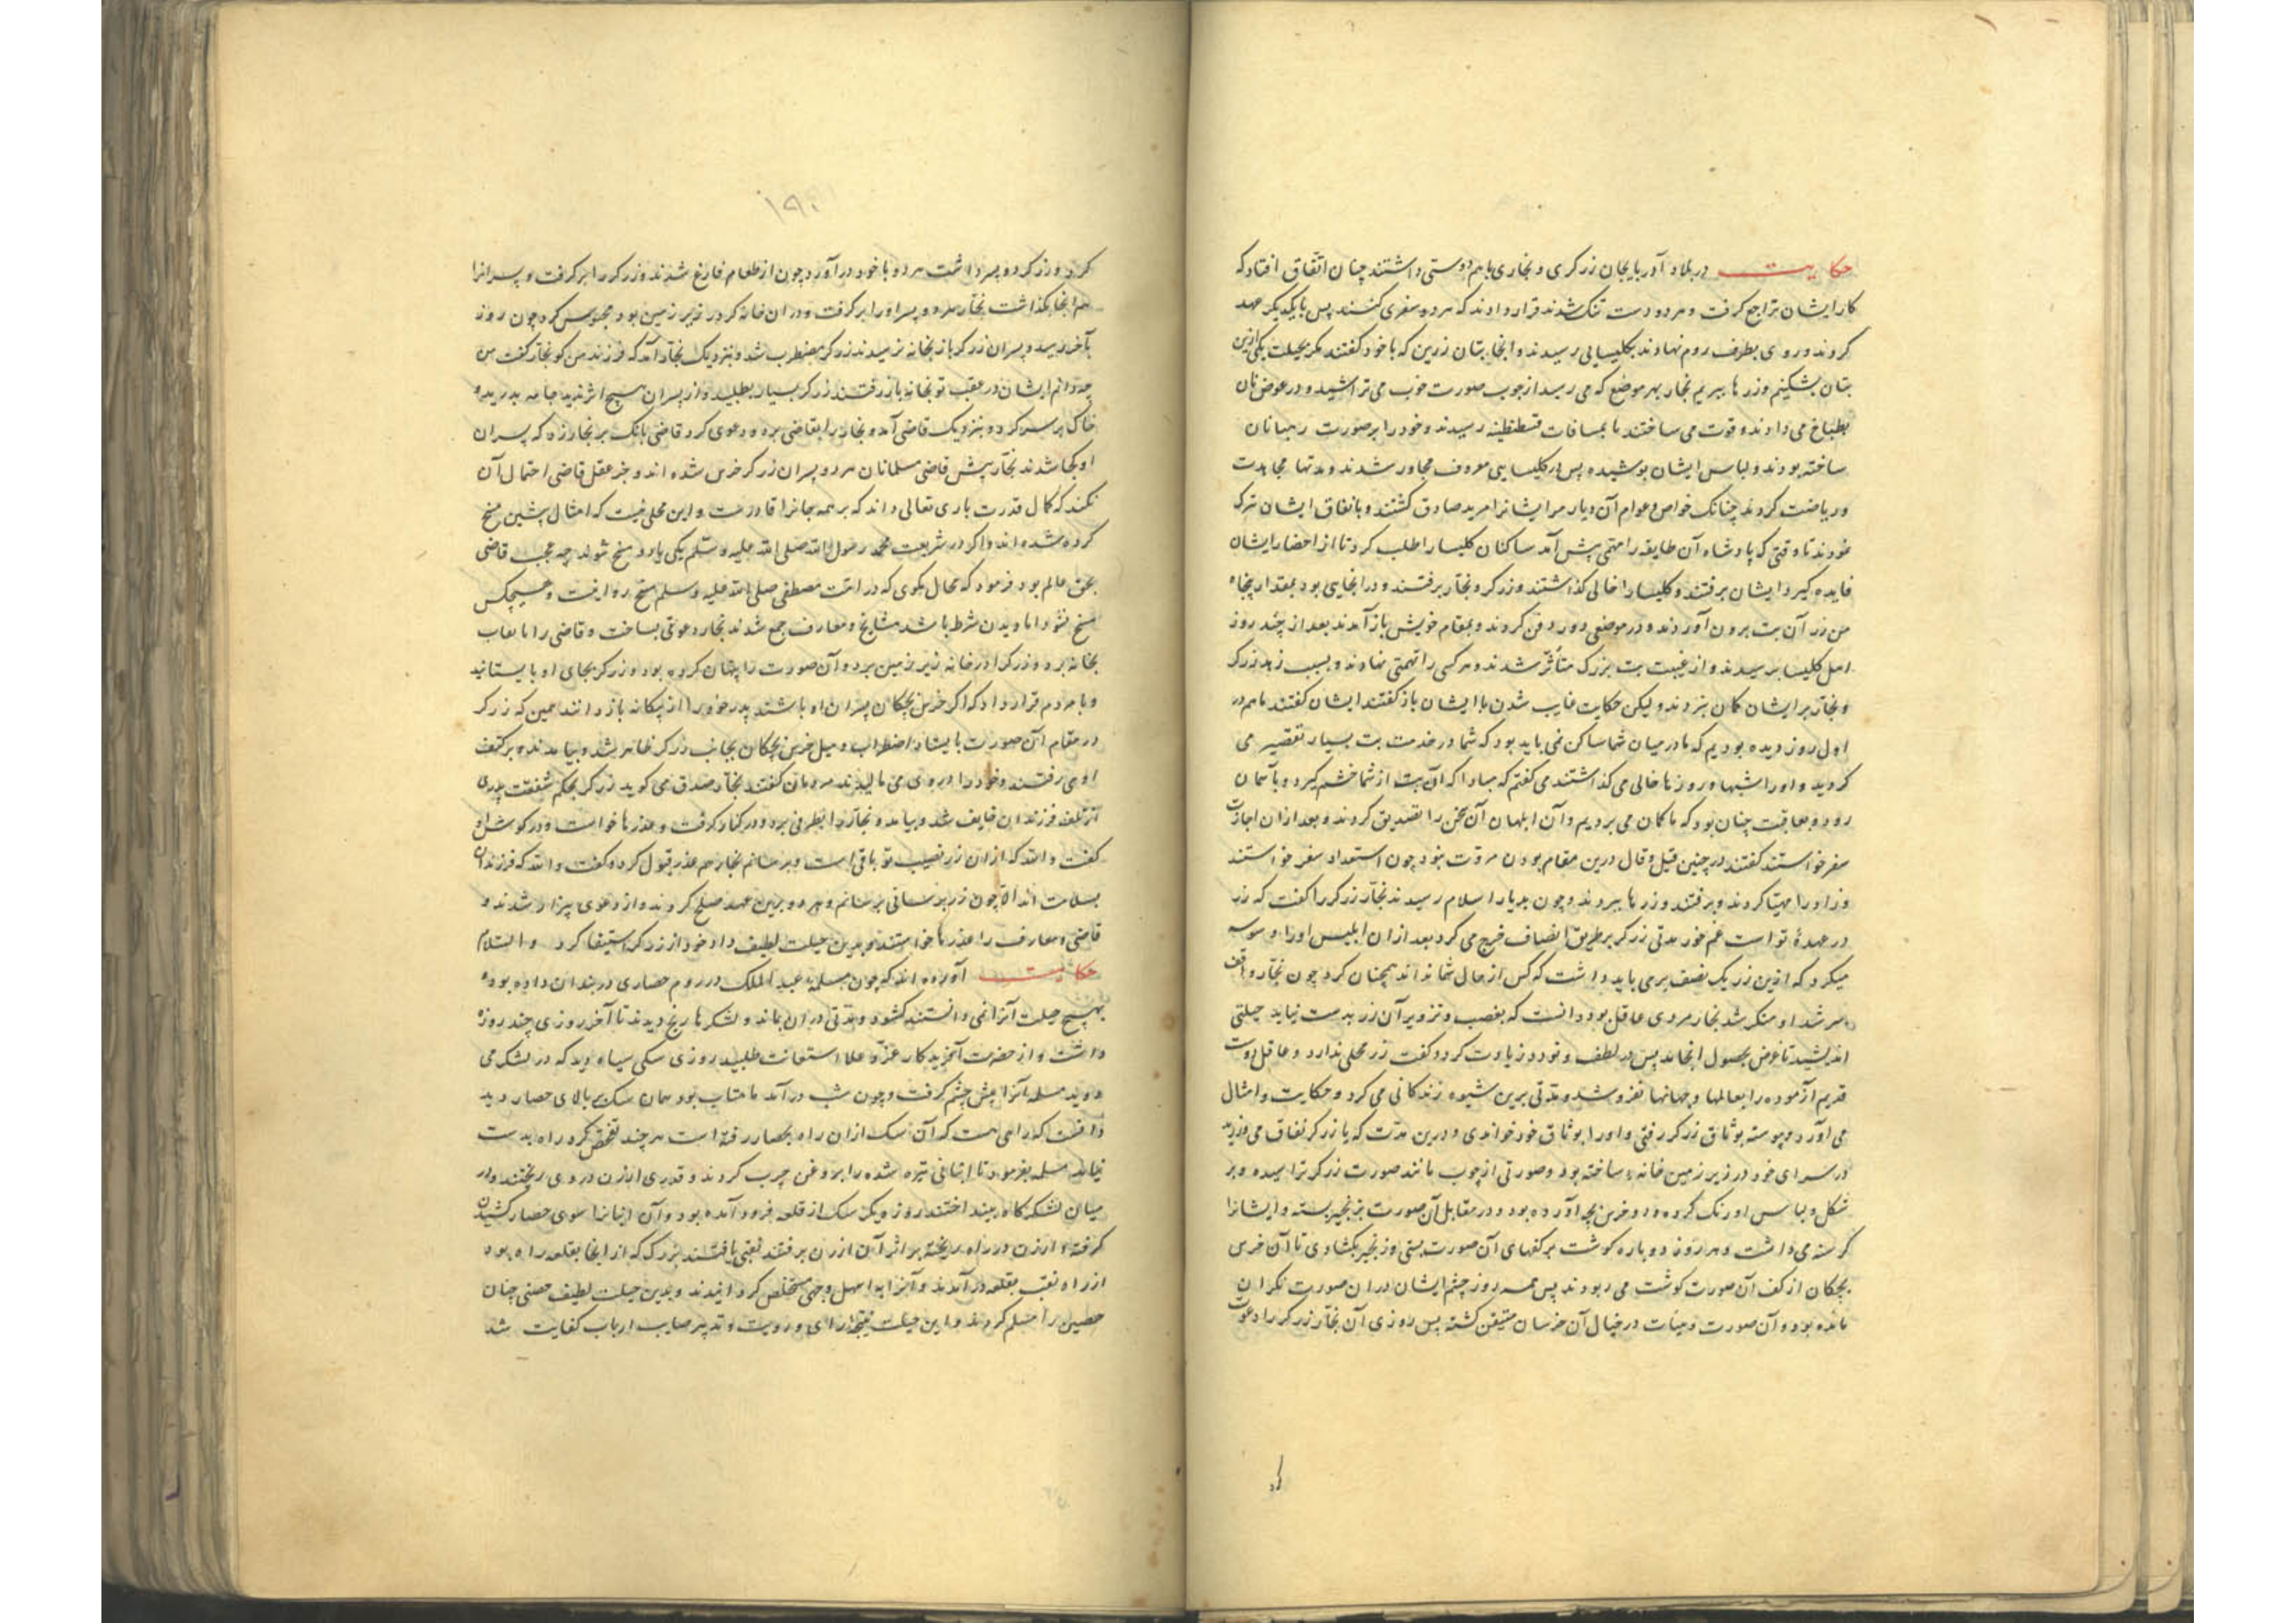 حکایت در بلاد آذربایجان زرگری و نجاری باهم دوستی داشتند چنان اتفاق افتاد که
کار ایشان تراجع گرفت و هر دو دست تنک شدند قرار دادند که هر دو سفری کنند پس با یکدیکر عهد
کردند و روی بطرف روم نهادند بکلیسایی رسیدند و انجا بتان زرین که با خود کفتند مکر بحیلت یکی ازین
بتان بشکنیم و زرها ببریم نجار بهر موضع که می رسید از چوب صورت خوب می تراشید و در عوض نان
بطباخ می دادند و قوت می ساختند تا بمسافات قسطنطینه رسیدند و خود را بر صورت رهبانان
ساخته بودند و لباس ایشان پوشیده پس در کلیسایی معروف مجاور شدند و مدتها مجاهدت
و ریاضت کردند چنانک خواص و عوام آن دیار مر ایشانرا مرید صادق کشتند و بانفاق ایشان تبرک
نمودند تا وقتی که پادشاه آن طایفه را مهمی پیش آمد ساکنان کلیسا را طلب کرد تا از احضار ایشان
فایده کیرد ایشان برفتند و کلیسا را خالی کذاشتند و زرکر و نجار برفتند و در انجا بتی بود بمقدار پنجاه
من زر آن بت برون آوردند و در موضعی دور دفن کردند و بمقام خویش باز آمدند بعد از چند روز
اهل کلیسا برسیدند و از غیبت بت بزرک متأثر شدند و هر کسی را تهمتی نهادند و بسبب زهد زرکر
و نجار بر ایشان کمان نبردند ولیکن حکایت غایب شدن با ایشان باز کفتند ایشان کفتند ما هم در
اول روز دیده بودیم که ما در میان شما ساکن نمی باید بود که شما در خدمت بت بسیار تقصیر می
کردید و او را شبها و روزها خالی می کذاشتند می کفتم که مبادا که آن بت از شما خشم کیرد و بآسمان
رود و بعاقبت چنان بود که ما کمان می بردیم و آن ابلهان آن سخن را تصدیق کردند و بعد از ان اجازت
سفر خواستند کفتند در چنین قیل و قال درین مقام بودن مروت نبود چون استعداد سفر خواستند
و زاد راه مهیا کردند و برفتند و زرها ببردند و چون بدیار اسلام رسیدند نجار زرکر را کفت که زر
در عهدهٔ تو است غم خور مدتی زرکر بر طریق انصاف خرج می کرد بعد از ان ابلیس او را وسوسه
میکرد که ازین زر یک نصف بر می باید داشت که کس از حال شما نداند همچنان کرد چون نجار واقف
سر شد او منکر شد نجار مردی عاقل بود دانست که بغصب و تزویر آن زر بدست نیاید حیلتی
اندیشید تا غرض بحصول انجامد پس در لطف و تودد زیادت کرد و کفت زر محلی ندارد و عاقل دوست
قدیم آزموده را بعالمها و جهانها نفروشد و مدتی برین شیوه زندکانی می کرد و حکایت و امثال
می آورد و پیوسته بوثاق زرکر رفتی و او را بوثاق خود خواندی و درین مدت که با زرکر نفاق می ورزید
در سرای خود در زیر زمین خانهٔ ساخته بود و صورتی از چوب مانند صورت زرکر تراشیده و بر
شکل و لباس او رنک کرده و دو خرس بچه آورده بود و در مقابل آن صورت بزنجیر بسته و ایشانرا
کرسنه می داشت و هر روز دو باره کوشت بر کفهای آن صورت بستی و زنجیر بکشادی تا آن خرس
بچکان از کف آن صورت کوشت می ربودند پس همه روز چشم ایشان در ان صورت نکران
مانده بود و آن صورت و هیأت در خیال آن خرسان متیقن کشته پس روزی آن نجار زرکر را دعوت
۱۹۰
کرد و زرکر دو پسر داشت هر دو با خود در آورد چون از طعام فارغ شدند زرکر را ببر کرفت و پسرانرا
هم انجا بکذاشت نجار هر دو پسر او را ببر کرفت و در ان خانه کرد در زیر زمین بود محبوس کرد چون روز
بآخر رسید و پسران زرکر باز بخانه نرسیدند زرکر مضطرب شد و بنزدیک نجار آمد که فرزند من کو نجار کفت من
چه دانم ایشان در عقب تو بخانه باز رفتند زرکر بسیار بطلبید و از پسران هیچ اثر ندید جامه بدرید و
خاک بر سر کرد و بنزدیک قاضی آمد و نجار را بقاضی برد و دعوی کرد قاضی بانک بر نجار زد که پسران
او کجا شدند نجار پیش قاضی مسلمانان هر دو پسران زرکر خرس شده اند و جز عقل قاضی احتمال آن
نکند که کمال قدرت باری تعالی داند که بر همه جانرا قادرست و این محلی نیست که امثال پیشین مسخ
کرده شده اند و اکر در شریعت محمد رسول الله صلی الله علیه و سلم یکی یا دو مسخ شوند چه عجب قاضی
بحق عالم بود فرمود که محال مکوی که در امت مصطفی صلی الله علیه و سلم مسخ روا نیست و هیچکس
مسخ نشود اما دیدن شرط باشد مشایخ و معارف جمع شدند نجار دعوتی بساخت و قاضی را با نعاب
بخانه برد و زرکر را در خانه زیر زمین برد و آن صورت را پنهان کرده بود و زرکر بجای او بایستانید
و با مردم قرار داد که اکر خرس بچکان پسران او باشند پدر خود را از بیکانه باز دانند همین که زرکر
در مقام آن صورت بایستاد اضطراب و میل خرس بچکان بجانب زرکر ظاهر شد و بیامدند و بر کتف
او می رفتند و خود را در روی می مالیدند مردمان کفتند نجار صدق می کوید زرکر بحکم شفقت پدری
از تلف فرزندان خایف شد و بیامد و نجار را بطرفی برد و در کنار کرفت و عذرها خواست و در کوش او
کفت والله که از ان زر نصیب تو باقی است و برسانم نجار هم عذر قبول کرد و کفت والله که فرزندان
بسلامت اند الا چون زر برسانی برسانم و هر دو برین عهد صلح کردند و از دعوی بیزار شدند و
قاضی و معارف را عذرها خواستند و بدین حیلت لطیف داد خود از زرکر استیفا کرد والسلام
حکایت آورده اند که چون مسلمهٔ عبد الملک در روم حصاری در بندان داده بود
بهیچ حیلت آنرا نمی دانستند کشود و مدتی در ان بماند و لشکرها رنج دیدند تا آخر روزی چند روزه
داشت و از حضرت آفریدکار عز و علا استعانت طلبید روزی سکی سیاه دید که در لشکر می
دوید مسلمه آنرا پیش چشم کرفت و چون شب در آمد ماهتاب بود همان سک بر بالای حصار دید
دانست که راهی هست که آن سک از ان راه بحصار رفته است هر چند تفحص کرد راه بدست
نیامد مسلمه بفرمود تا انبانی تیره شده را بروغن چرب کردند و قدری ارزن در وی ریختند و در
میان لشکر کاه بینداختند روز دیکر سک از قلعه فرود آمده بود و آن انبانرا سوی حصار کشیدن
کرفته و ارزن در راه ریخته بر اثر آن ارزن برفتند نقبی یافتند بزرک که از انجا بقلعه راه بود
از راه نقب بقلعه در آمدند و آنرا باسهل وجهی مستخلص کردانیدند و بدین حیلت لطیف حصنی چنان
حصین را مسلم کردند و این حیلت نتیجهٔ رای و رویت و تدبیر صایب ارباب کفایت شد